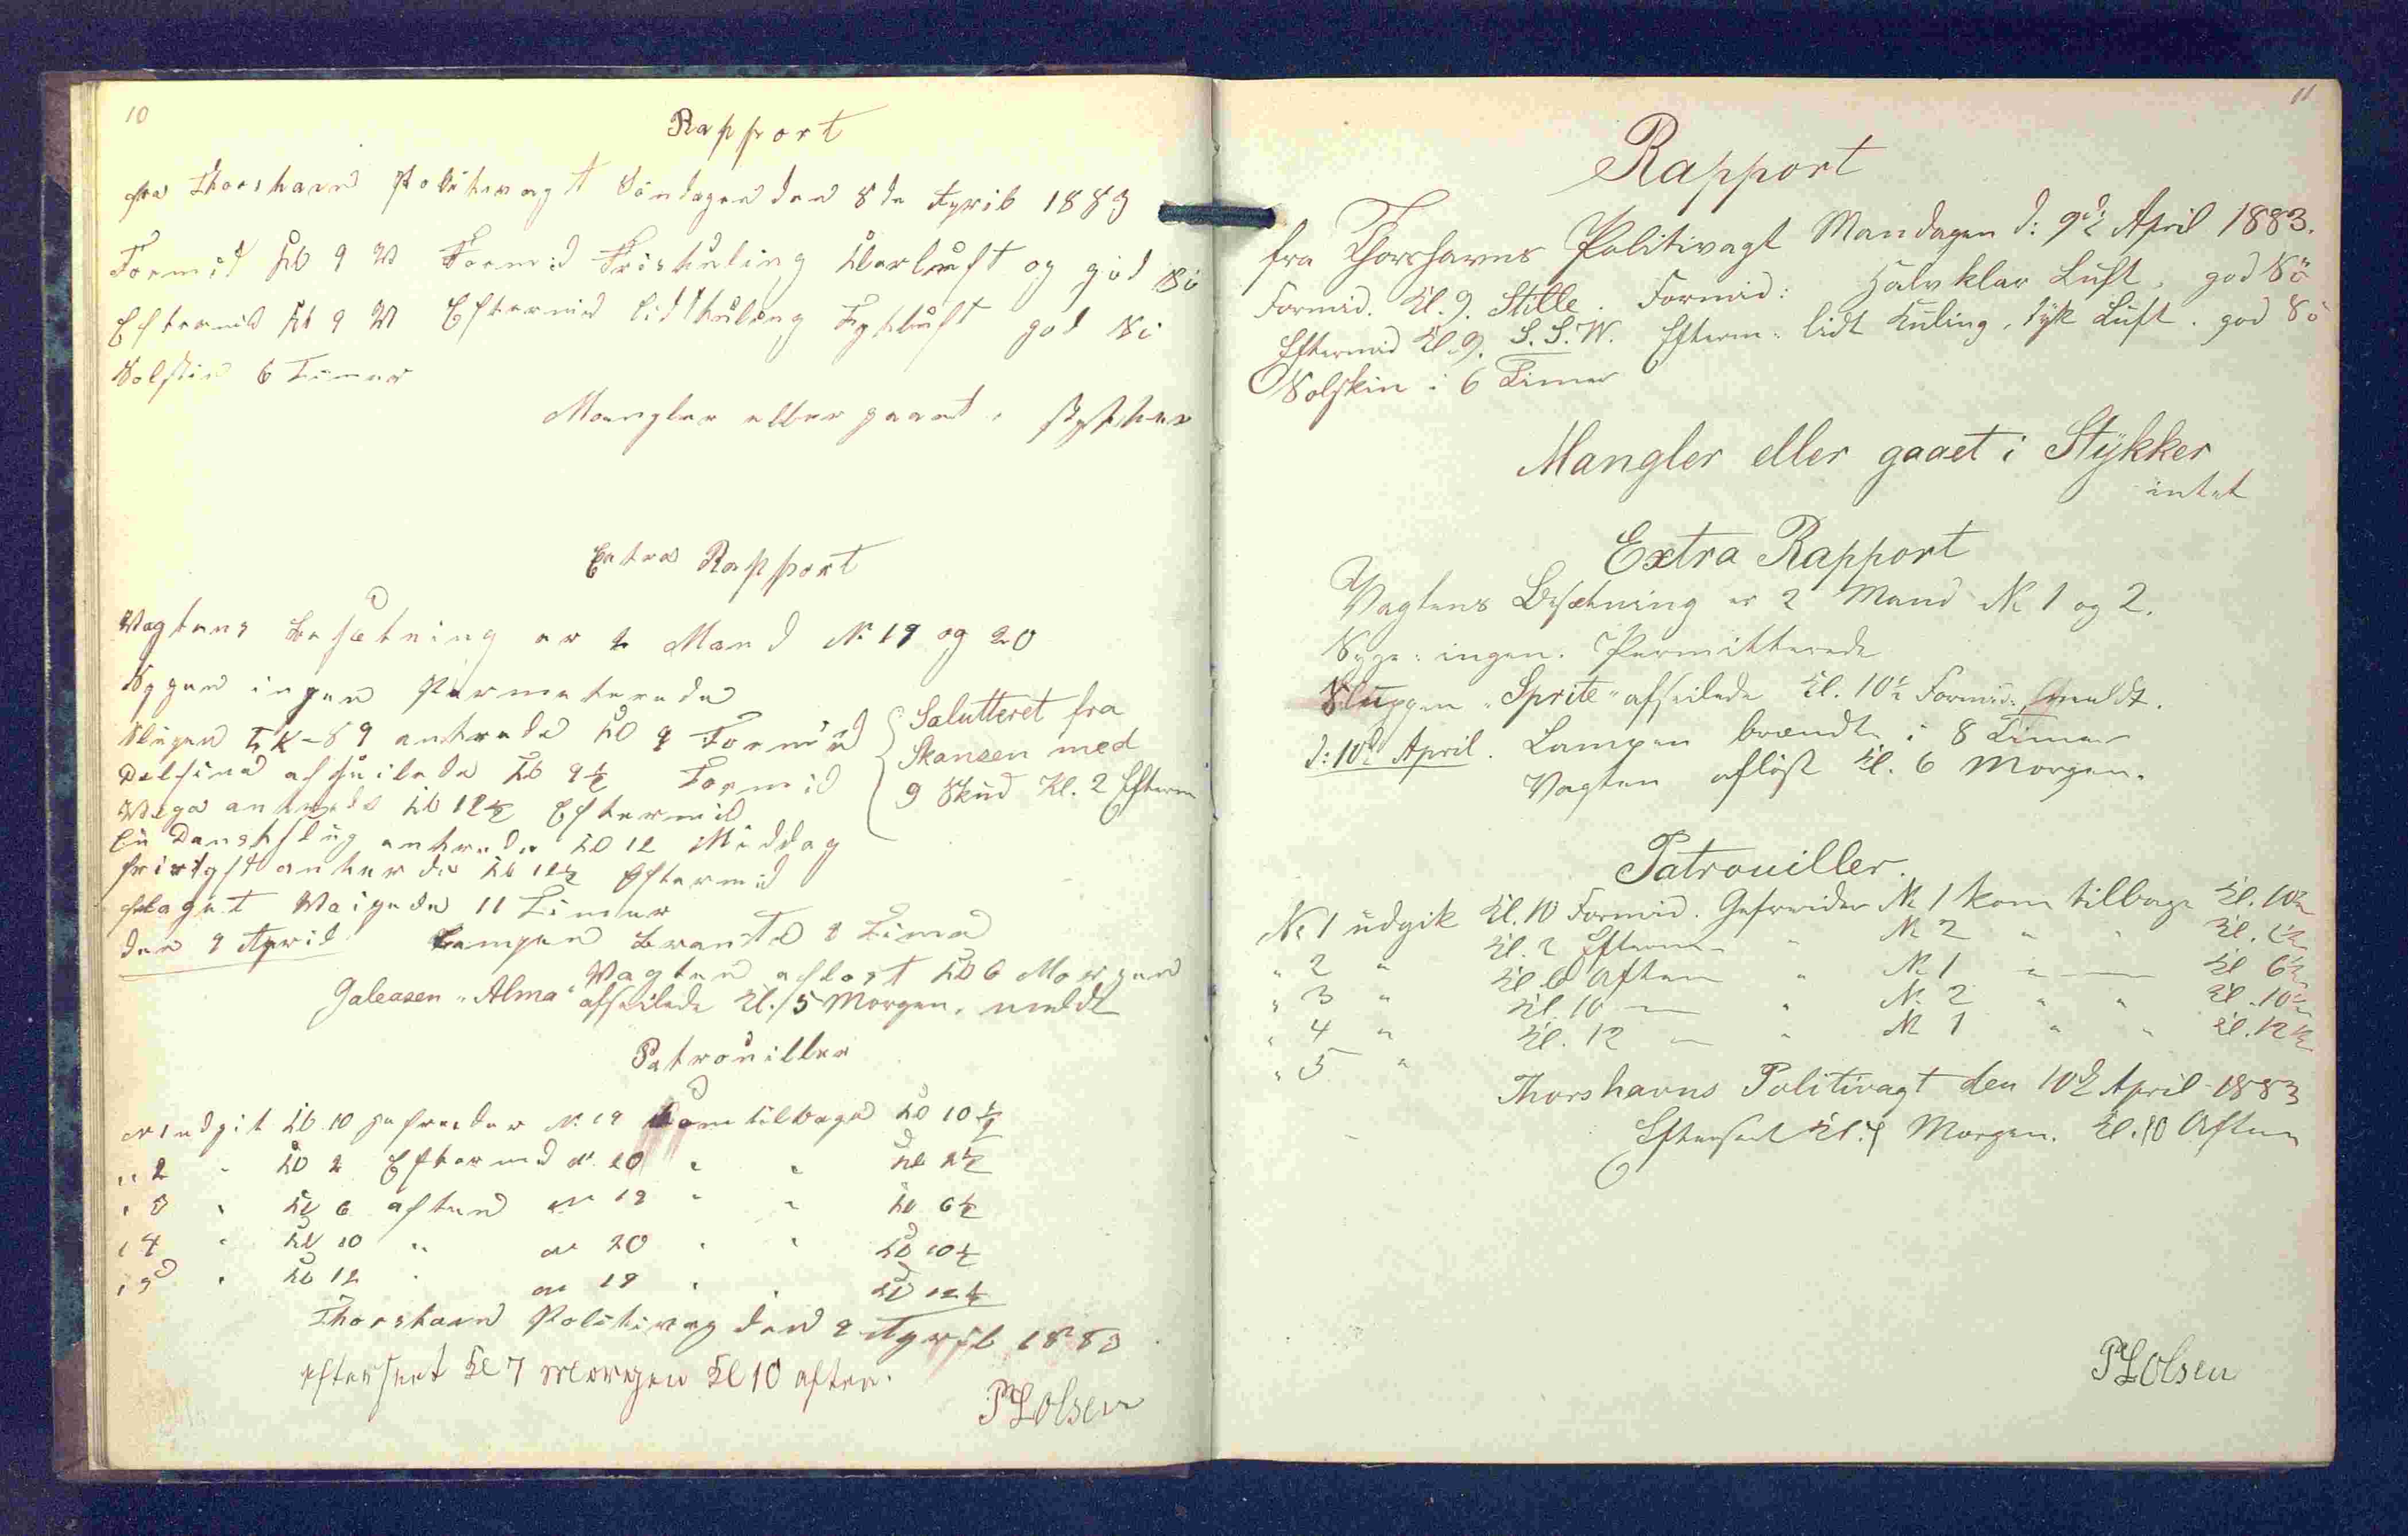 10
Rapport
fra Thorshavn Politivagt Söndagen den 8de Apriil 1883
Formid Kl 9 V Formid Friskuling Klarluft og god Sö
Eftermid Kl 9 V Eftermid lidtkuling Tykluft god Sö
Solskin 6 Timer
Mangler eller gaaet i stykker
Extra Rapport
Vagtens Besætning er 2 Mand No 19 og 20
Sygen ingen Permeterede
Slupen ankrede Kl 9 Formid
Delfinen afseilede Kl 9½ Formid
Vega ankrede Kl 12½ Eftermid
En Danskslup ankrede Kl 12 Middag
ankerde Kl 12½ Eftermid
Salutteret fra
Skansen med
9 Skud Kl. 2 Efterm
flaget Vaigede 11 Timer
den 9 April Lampen Brante 8 Timer
Vagten aflöst Kl 6 Morgen
Galeasen "Alma" afseilede Kl. 5 Morgen. meldt
Patrouiller
No 1 udgik Kl. 10 Gefreider No 19 kom tilbage Kl 10½
" 2 " Kl 2 Eftermid No 20 " " Kl 2½
" 3 " Kl 6 aften No 19 " " Kl 6½
" 4 " Kl 10 " No 20 " " Kl 10½
" 5 " Kl 12 " No 19 " " Kl 12½
Thorshavn Politivag den 9 Apriil 1883
efterseet Kl 7 Morgen Kl 10 aften.
P Olsen
11
Rapport
fra Thorshavns Politivagt Mandagen d: 9de April 1883.
Formid. Kl. 9. Stille. Formid: Halvklar Luft, god Sö
Eftermid Kl. 9. S.S.W. Efterm: lidt Kuling, tyk Luft. god Sö
Solskin i 6 Timer
Mangler eller gaaet i Stykker
intet
Extra Rapport
Vagtens Besætning er 2 Mand No 1 og 2.
Syge: ingen. Permitterede
Sluppen "Sprite" afseilede Kl. 10½ Formid. meldt.
d: 10de April. Lampen brændte i 8 Timer
Vagten aflöst Kl. 6 Morgen.
Patrouiller.
No 1 udgik Kl. 10 Formid. Gefreider No 1 kom tilbage Kl. 10½
" 2 " Kl. 2 Efterm " No 2 " " Kl. 2½
" 3 " Kl 6 Aften " No 1 " — Kl 6½
" 4 " Kl. 10 — " No 2 " " Kl. 10½
" 5 " Kl. 12 — " No 1 " " Kl. 12½
Thorshavns Politivagt den 10de April 1883
Efterseet Kl. 7 Morgen. Kl. 10 Aften
P Olsen